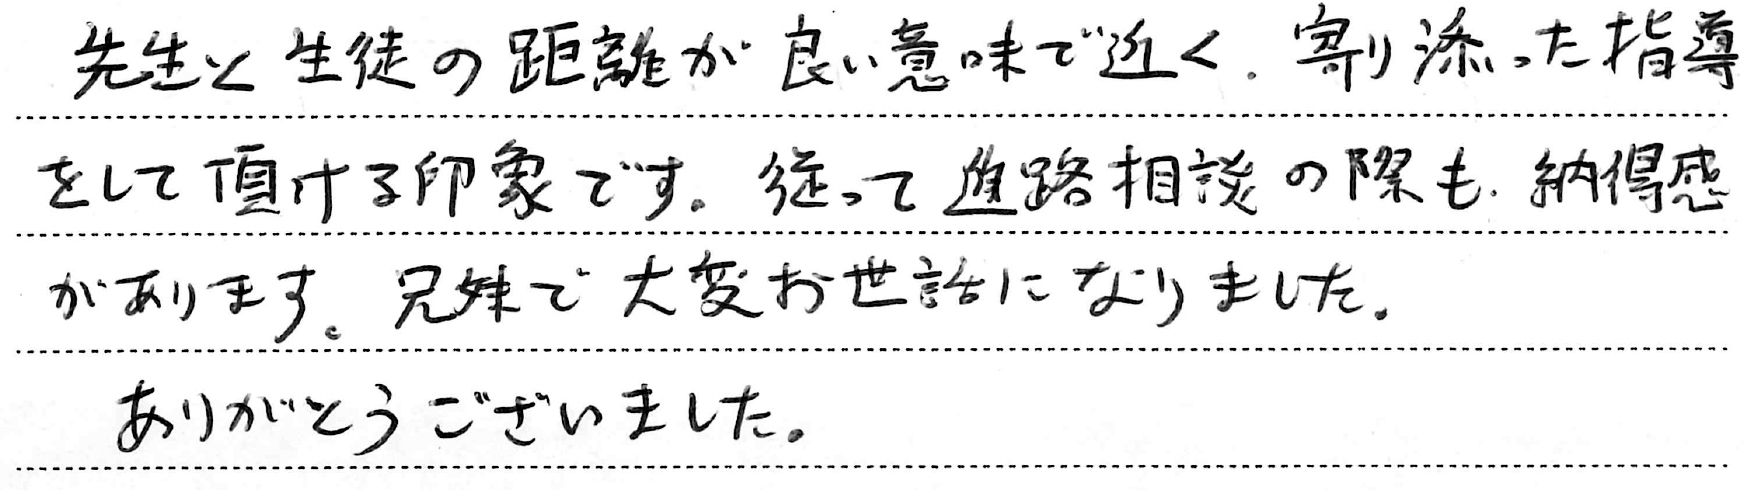 先生と生徒の距離が良い意味で近く、寄り添った指導
をして頂ける印象です。従って進路相談の際も、納得感
があります。兄妹で大変お世話になりました。
ありがとうございました。